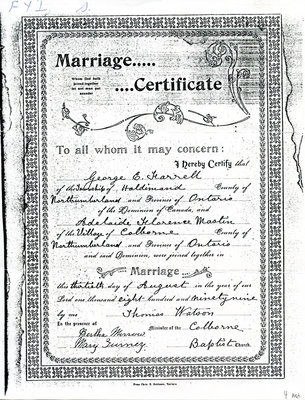 F Y I
Marriage.....
Whom God hath
joined together
let not man put
asunder
....Certificate
To all whom it may concern:
I Hereby Certify that
George E. Farrell
of the Township of Haldimand County of
Northumberland and Province of Ontario
of the Dominion of Canada, and
Adelaide Florence Mastin
of the Village of Colborne County of
Northumberland and Province of Ontario
and said Dominion, were joined together in
Marriage
this thirtieth day of August in the year of our
Lord one thousand eight hundred and ninetynine
by me Thomas Watson
In the presence of Minister of the Colborne
Bertha
Mary Gurney Baptist Church